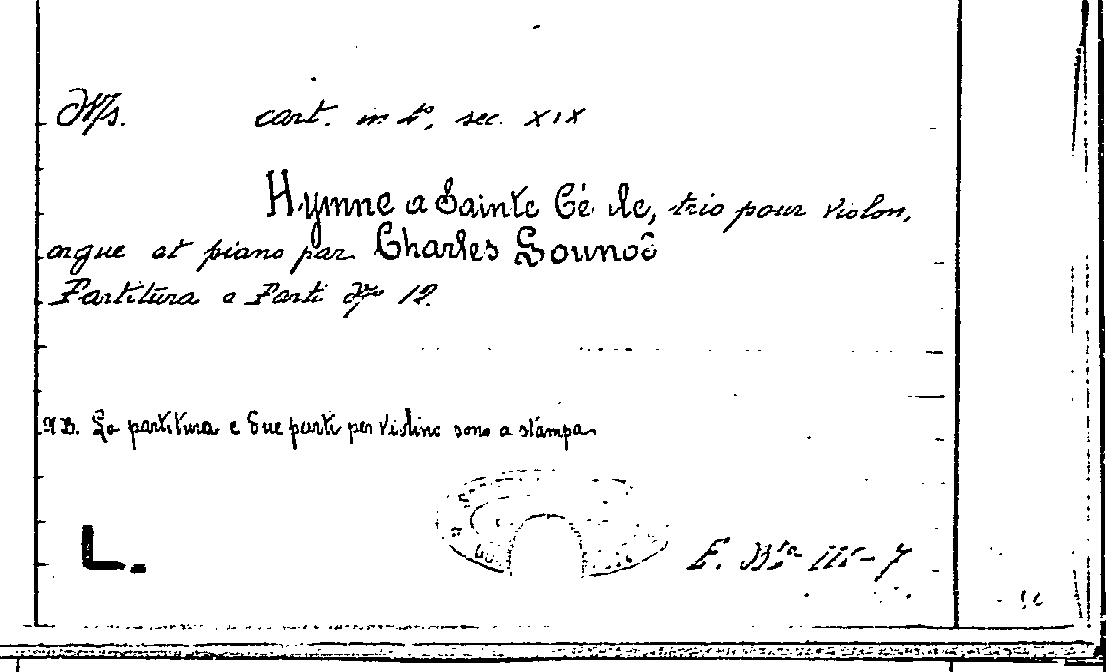 Ms. cart. in 4°, sec. XIX
Hymne a Sainte Cé le, trio pour violon,
orgue et piano par Charles Gounod
Partitura e Parti N° 12.
NB. La partitura e due parti per violino sono a stampa
L. F. Bta III-7